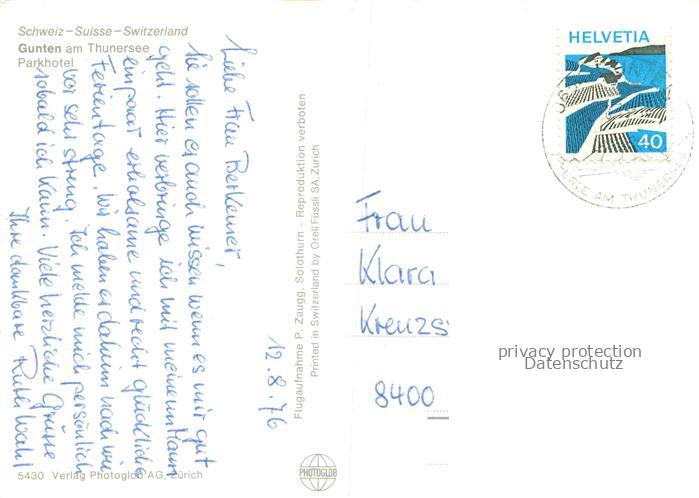 Schweiz–Suisse–Switzerland
Gunten am Thunersee
Parkhotel
Liebe Frau
Sie sollen es auch wissen wenn es mir gut
geht. Hier verbringe ich mit meinem Mann
ein paar erholsame und recht glückliche
Ferientage. Wir haben es daheim nach wie
vor sehr streng. Ich melde mich persönlich
sobald ich kann. Viele herzliche Grüsse
Ihre dankbare Ruth Wahl
12.8.76
5430 Verlag Photoglob AG, Zürich
Flugaufnahme P. Zaugg, Solothurn – Reproduktion verboten
Printed in Switzerland by Orell Füssli SA, Zürich
PHOTOGLOB
HELVETIA
40
AM THUNERSEE
Frau
Klara
Kreuzs
8400
privacy protection
Datenschutz